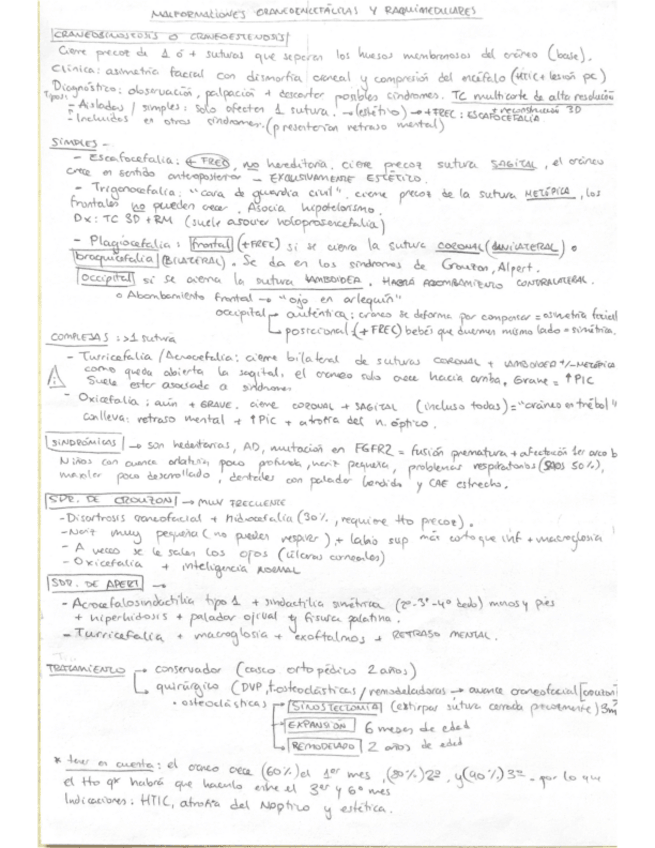 MALFORMACIONES CRANEOENCEFÁLICAS Y RAQUIMEDULARES
CRANEOSINOSTOSIS O CRANEOESTENOSIS
Cierre precoz de 1 ó + suturas que separan los huesos membranosos del cráneo (base).
Clínica: asimetría facial con dismorfia craneal y compresión del encéfalo (HTIC + lesión pc)
Diagnóstico: observación, palpación + descartar posibles síndromes. TC multicorte de alta resolución
+ reconstrucción 3D
Tipos:
- Aisladas / simples: solo afectan 1 sutura. → (estético) → +FREC: ESCAFOCEFALIA
- Incluidas en otros síndromes. (presentarían retraso mental)
SIMPLES -
- Escafocefalia: + FREC, no hereditaria, cierre precoz sutura SAGITAL, el cráneo
crece en sentido anteroposterior - EXCLUSIVAMENTE ESTÉTICO.
- Trigonocefalia: "cara de guardia civil". cierre precoz de la sutura METÓPICA, los
frontales no pueden crecer. Asocia hipotelorismo.
Dx: TC 3D + RM (suele asociar holoprosencefalia)
- Plagiocefalia: frontal (+FREC) si se cierra la sutura CORONAL (UNILATERAL) o
braquicefalia (BILATERAL). Se da en los síndromes de Crouzon, Alpert.
occipital si se cierra la sutura LAMBOIDEA. HABRÁ ABOMBAMIENTO CONTRALATERAL.
o Abombamiento frontal → "ojo en arlequín"
occipital → auténtica: cráneo se deforma por compensar = asimetría facial
→ posicional: (+FREC) bebés que duermen mismo lado = simétrica.
COMPLEJAS: >1 sutura
- Turricefalia / Acrocefalia: cierre bilateral de suturas CORONAL + LAMBOIDEA +/- METÓPICA
como queda abierta la sagital, el cráneo solo crece hacia arriba. Grave = ↑PIC
Suele estar asociada a síndromes
- Oxicefalia: aún + GRAVE. cierre CORONAL + SAGITAL (incluso todas) = "cráneo en trébol"
conlleva: retraso mental + ↑PIC + atrofia del n. óptico.
SINDRÓMICAS → son hereditarias, AD, mutación en FGFR2 = fusión prematura + afectación 1er arco b
Niños con avance orbitario poco profunda, nariz pequeña, problemas respiratorios (SAOS 50%),
maxilar poco desarrollado, dentales con paladar hendido y CAE estrecho.
SDR. DE CROUZON → MUY FRECUENTE
- Disostosis craneofacial + Hidrocefalia (30%, requiere tto precoz).
- Nariz muy pequeña (no pueden respirar) + labio sup más corto que inf + macroglosia
- A veces se le salen los ojos (úlceras corneales)
- Oxicefalia + inteligencia NORMAL
SDR. DE APERT →
- Acrocefalosindactilia tipo 1 + sindactilia simétrica (2º-3º-4º dedo) manos y pies
+ hiperhidosis + paladar ojival y fisura palatina.
- Turricefalia + macroglosia + exoftalmos + RETRASO MENTAL.
TRATAMIENTO → conservador (casco ortopédico 2 años)
→ quirúrgico (DVP, t.osteoclásticas / remodeladoras → avance craneofacial [crouzon]
• osteoclásticas → SINOSTECTOMÍA (extirpar sutura cerrada precozmente) 3m
→ EXPANSIÓN 6 meses de edad
→ REMODELADO 2 años de edad
* tener en cuenta: el cráneo crece (60%) el 1er mes, (80%) 2º, y (90%) 3º - por lo que
el tto qx habrá que hacerlo entre el 3er y 6º mes
Indicaciones: HTIC, atrofia del Nóptico y estética.